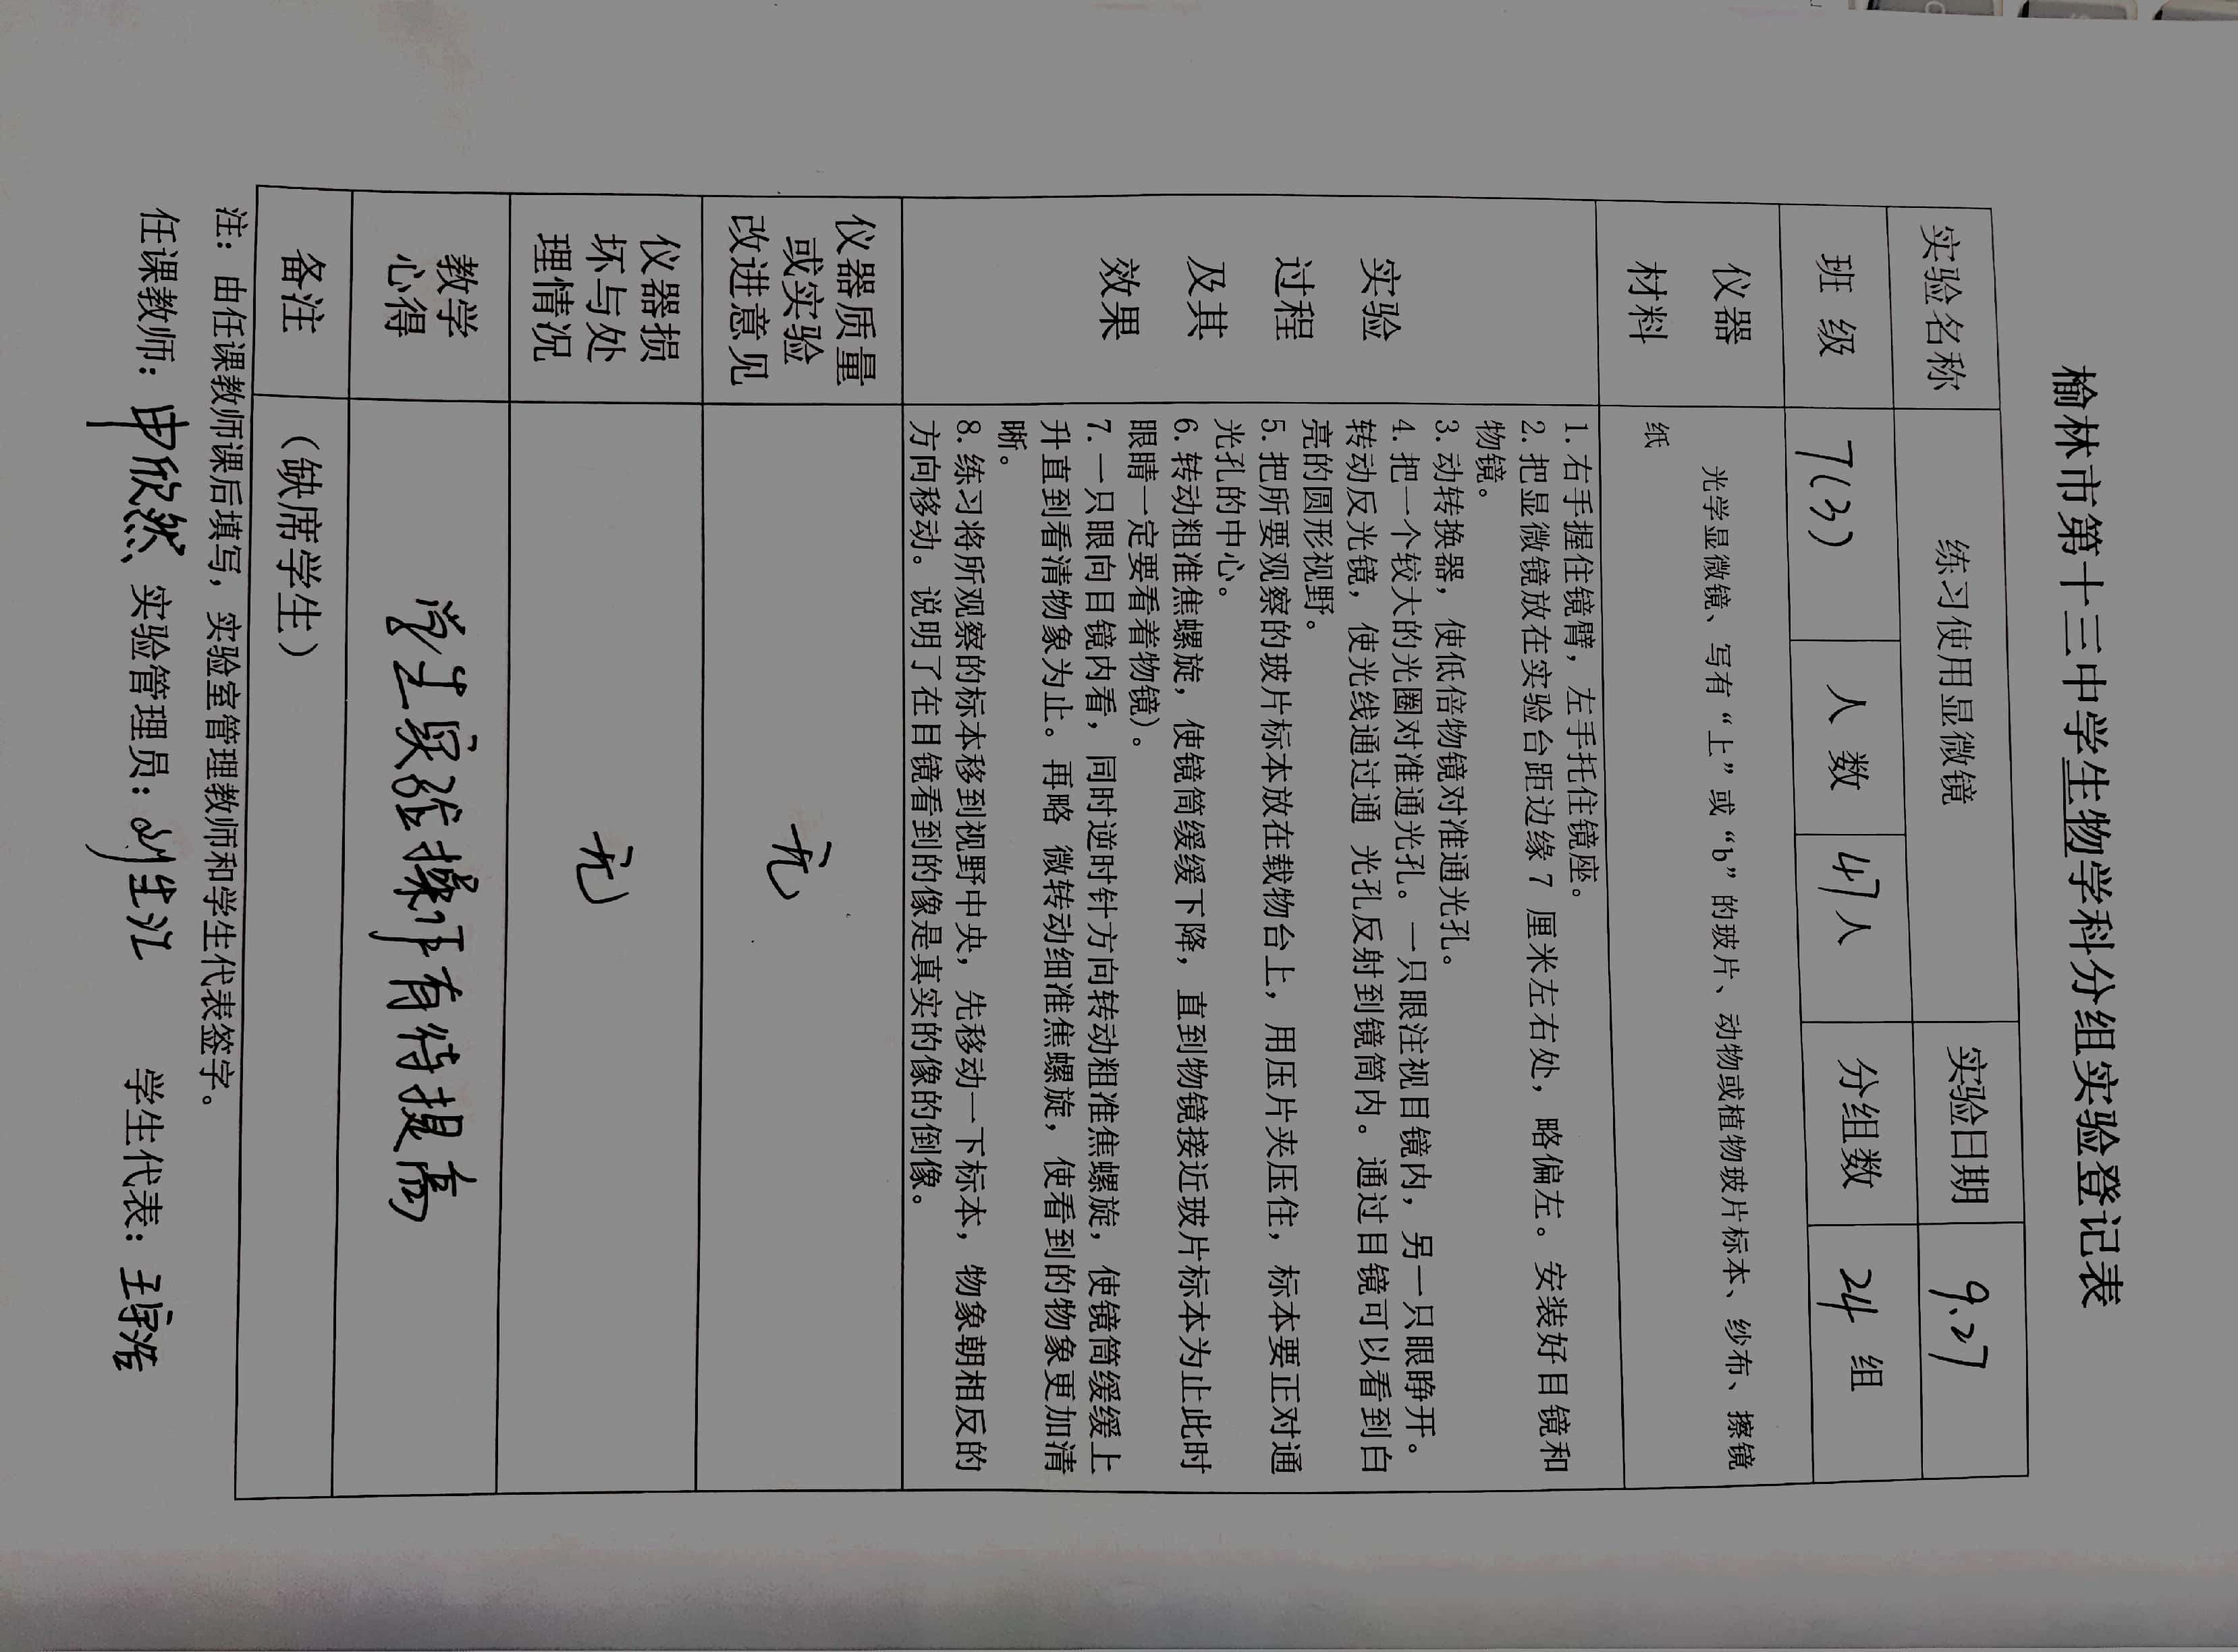 榆林市第十三中学生物学科分组实验登记表
实验名称 练习使用显微镜 实验日期 9.27
班 级 7(3) 人 数 47人 分组数 24 组
仪器
材料
光学显微镜、写有“上”或“b”的玻片、动物或植物玻片标本、纱布、擦镜
纸
实验
过程
及其
效果
1. 右手握住镜臂，左手托住镜座。
2. 把显微镜放在实验台距边缘 7 厘米左右处，略偏左。安装好目镜和
物镜。
3. 动转换器，使低倍物镜对准通光孔。
4. 把一个较大的光圈对准通光孔。一只眼注视目镜内，另一只眼睁开。
转动反光镜，使光线通过通 光孔反射到镜筒内。通过目镜可以看到白
亮的圆形视野。
5. 把所要观察的玻片标本放在载物台上，用压片夹压住，标本要正对通
光孔的中心。
6. 转动粗准焦螺旋，使镜筒缓缓下降，直到物镜接近玻片标本为止此时
眼睛一定要看着物镜）。
7. 一只眼向目镜内看，同时逆时针方向转动粗准焦螺旋，使镜筒缓缓上
升直到看清物象为止。再略 微转动细准焦螺旋，使看到的物象更加清
晰。
8. 练习将所观察的标本移到视野中央，先移动一下标本，物象朝相反的
方向移动。说明了在目镜看到的像是真实的像的倒像。
仪器质量
或实验
改进意见
无
仪器损
坏与处
理情况
无
教学
心得
学生实验操作有待提高
备注 （缺席学生）
注：由任课教师课后填写，实验室管理教师和学生代表签字。
任课教师：申欣然 实验管理员： 学生代表：